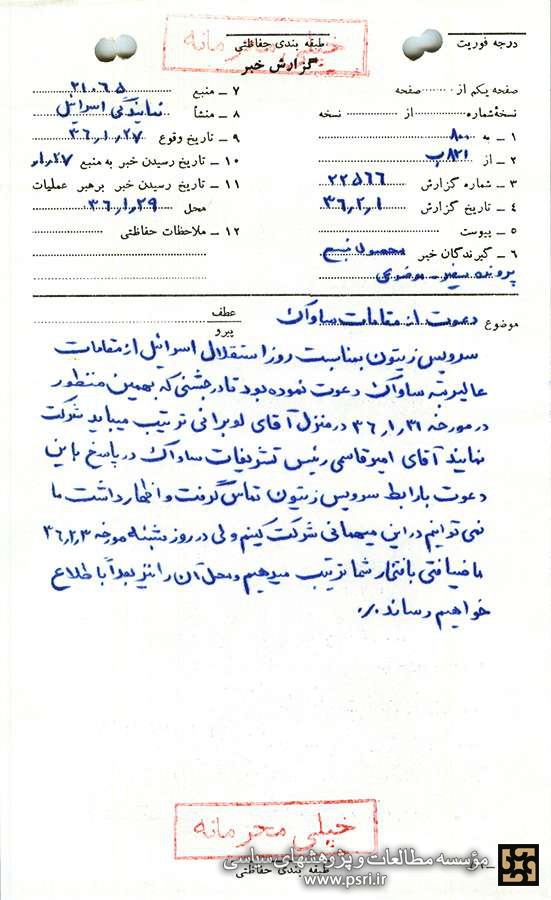 درجه فوریت
طبقه بندی حفاظتی
خیلی محرمانه
گزارش خبر
صفحه یکم از ........ صفحه
نسخهٔ شماره ........ از ........ نسخه
۱ - به ۸۰۰
۲ - از ۸۲۱ ب
۳ - شماره گزارش ۲۲۵۶۶
۴ - تاریخ گزارش ۳۶,۲,۱
۵ - پیوست
۶ - گیرندگان خبر محصول منبع
پرونده سفیر - موضوعی
۷ - منبع ۲۱۰۶۵
۸ - منشأ نمایندگی اسرائیل
۹ - تاریخ وقوع ۳۶,۱,۲۷
۱۰ - تاریخ رسیدن خبر به منبع
۱۱ - تاریخ رسیدن خبر برهبر عملیات
محل ۳۶,۱,۲۹
۱۲ - ملاحظات حفاظتی
موضوع دعوت از مقامات ساواک
عطف
پیرو
سرویس زیتون بمناسبت روز استقلال اسرائیل از مقامات
عالیرتبه ساواک دعوت نموده بود تا در جشنی که بهمین منظور
در مورخه ۳۶,۱,۳۱ در منزل آقای لوبرانی ترتیب میباید شرکت
نمایند آقای امیرقاسمی رئیس تشریفات ساواک در پاسخ باین
دعوت با رابط سرویس زیتون تماس گرفت و اظهار داشت ما
نمی توانیم در این میهمانی شرکت کنیم ولی در روز شنبه مورخه ۳۶,۲,۳
ما ضیافتی بافتخار شما ترتیب میدهیم و محل آن را نیز بعداً باطلاع
خواهیم رساند ./.
خیلی محرمانه
طبقه بندی حفاظتی
مؤسسه مطالعات و پژوهشهای سیاسی
www.psri.ir